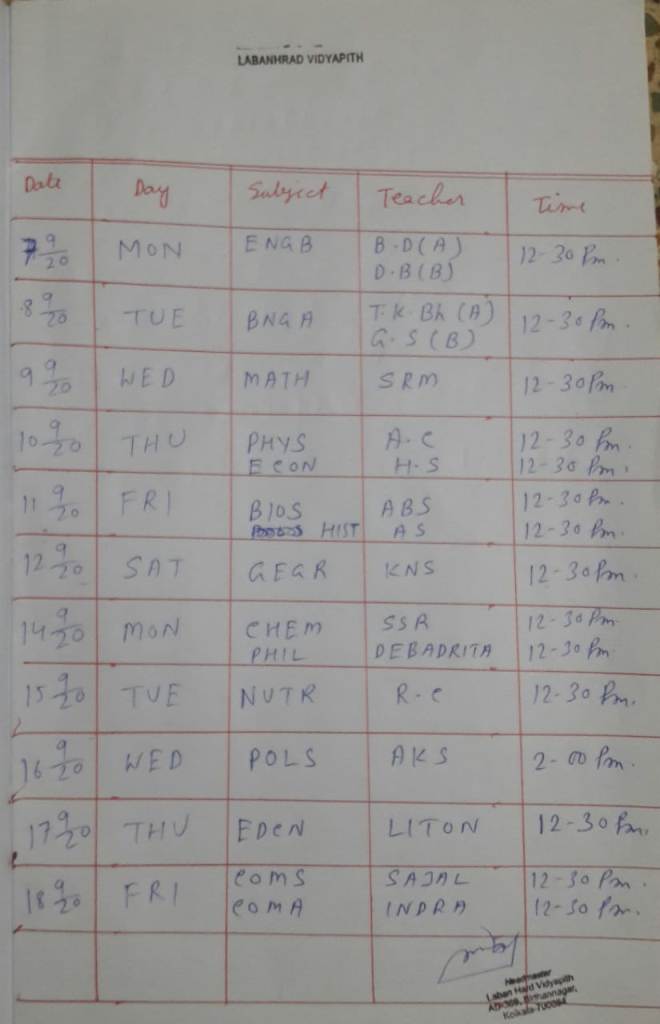 LABANHRAD VIDYAPITH
Date Day Subject Teacher Time
7 9/20 MON ENGB B.D(A) 12-30 Pm.
D.B(B)
8 9/20 TUE BNGA T.K.Bh(A) 12-30 Pm.
G.S(B)
9 9/20 WED MATH SRM 12-30 Pm
10 9/20 THU PHYS A.C 12-30 Pm.
ECON H.S 12-30 Pm.
11 9/20 FRI BIOS ABS 12-30 Pm.
HIST AS 12-30 Pm.
12 9/20 SAT GEGR KNS 12-30 Pm.
14 9/20 MON CHEM SSR 12-30 Pm
PHIL DEBADRITA 12-30 Pm
15 9/20 TUE NUTR R.C 12-30 Pm.
16 9/20 WED POLS AKS 2-00 Pm.
17 9/20 THU EDCN LITON 12-30 Pm.
18 9/20 FRI COMS SAJAL 12-30 Pm.
COMA INDRA 12-30 Pm.
Headmaster
Laban Hard Vidyapith
Kolkata-700064